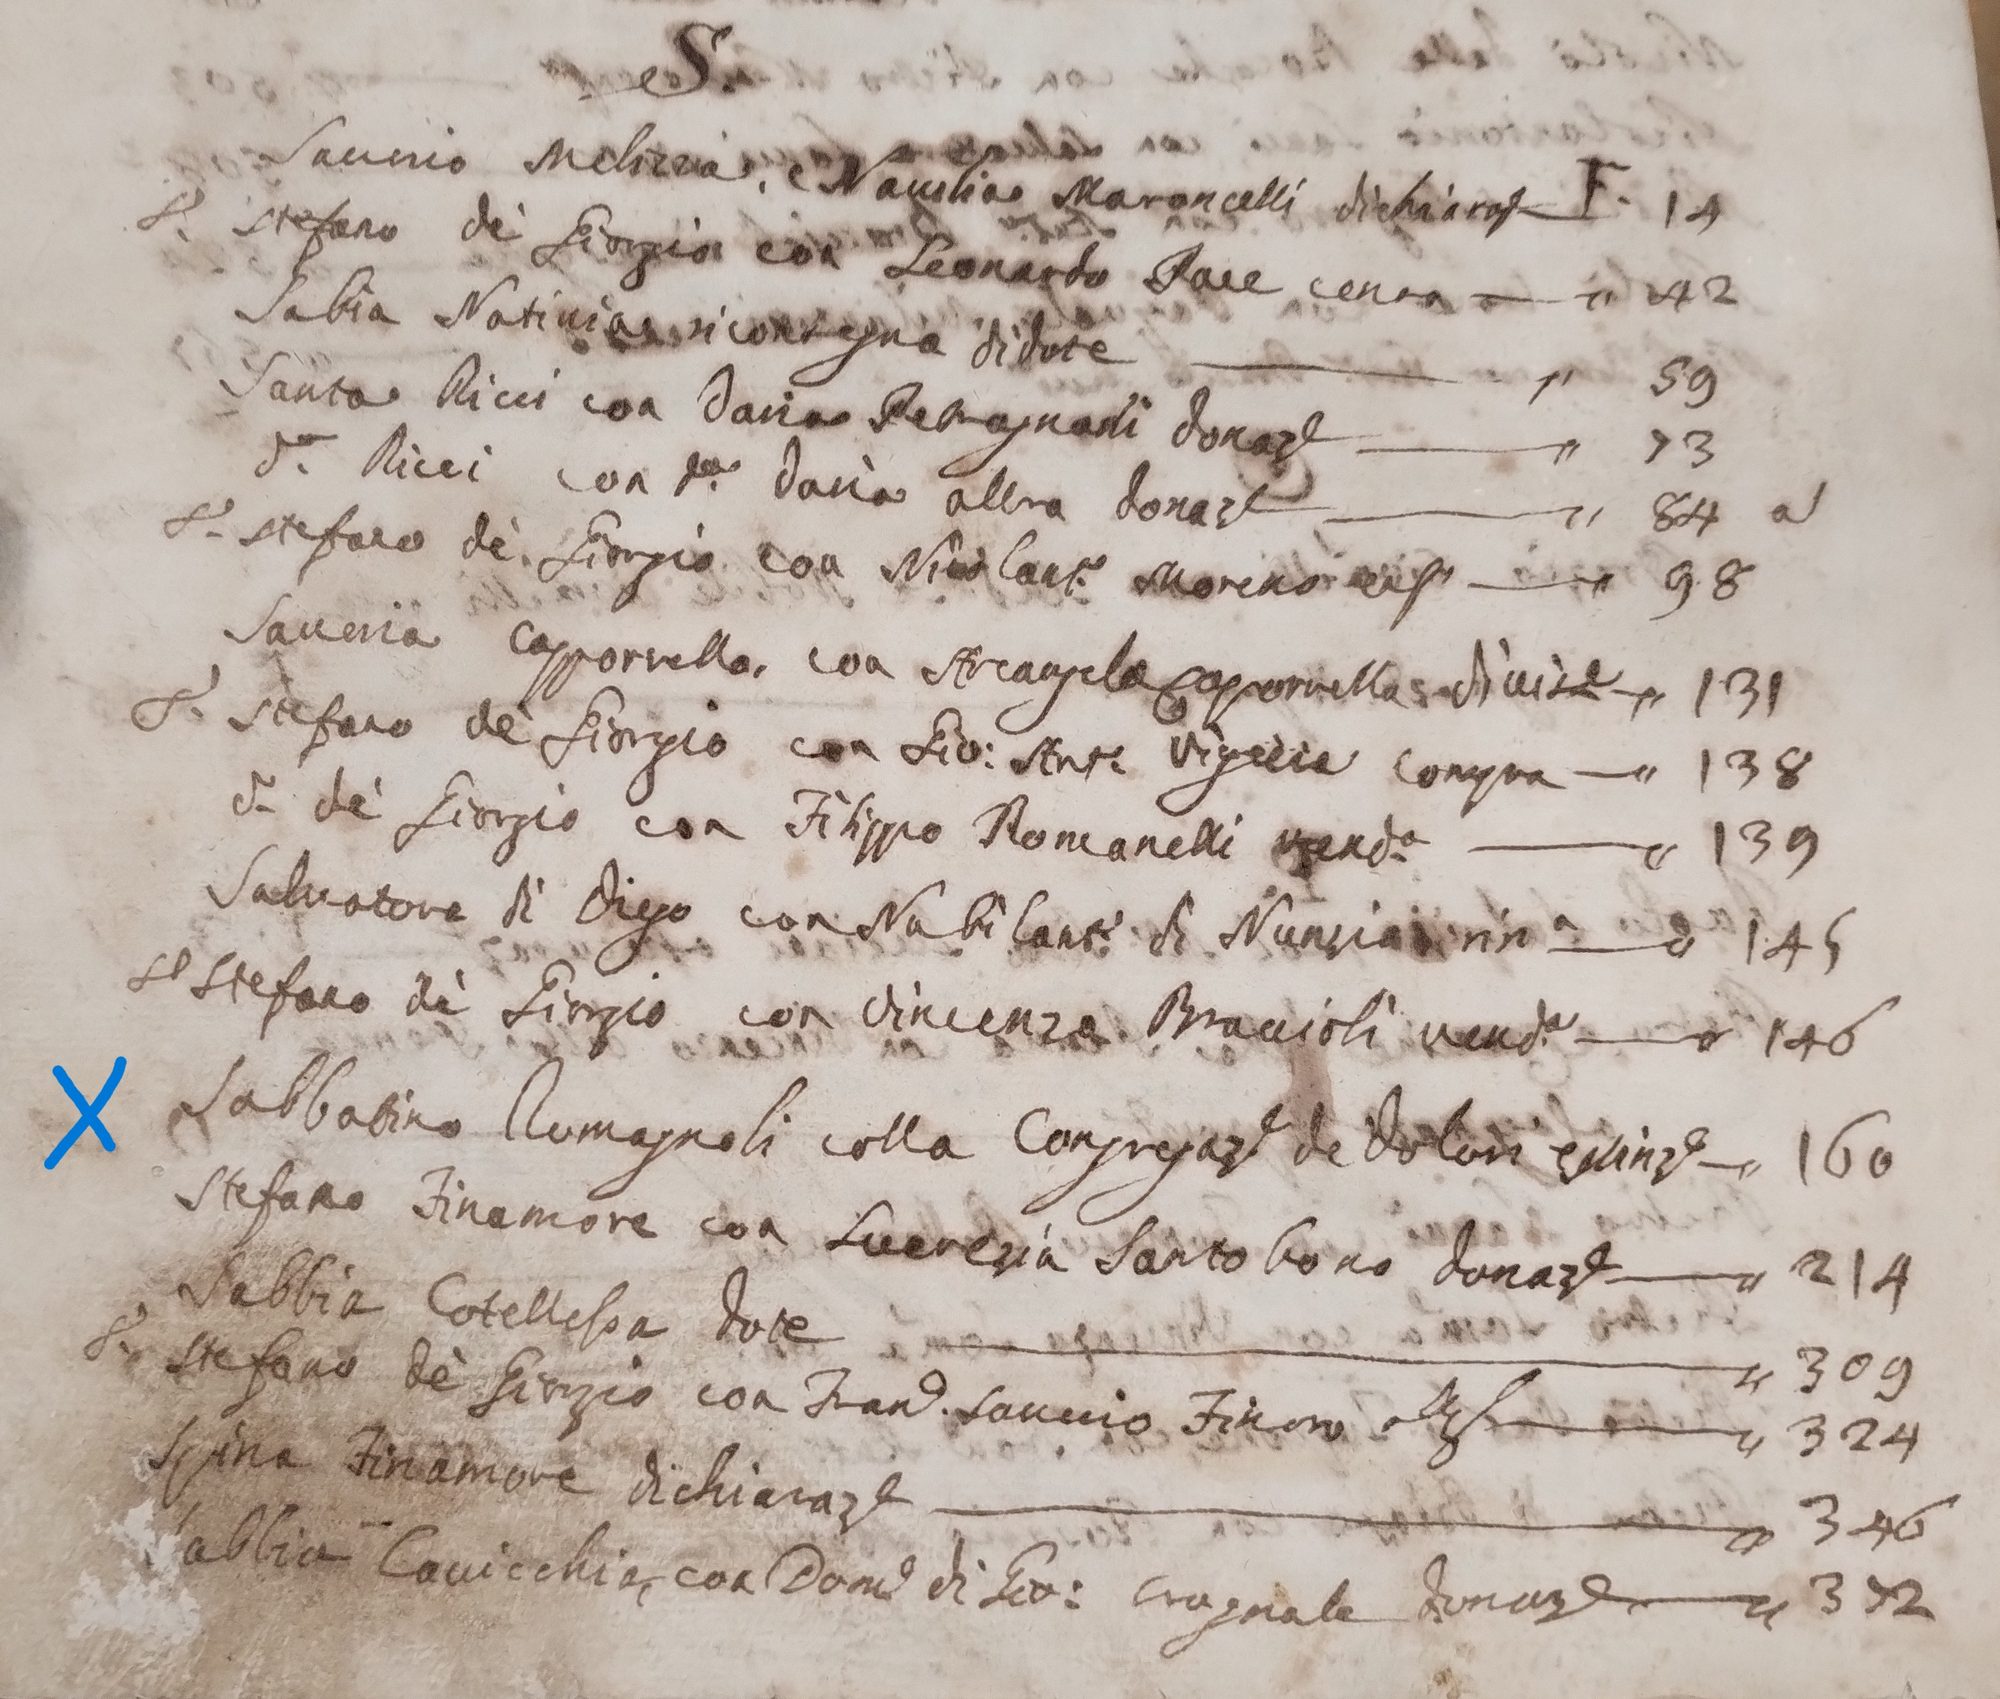 S.
Sauerio Melizzia, e Nauilia Maroncelli dichiaraz.e F. 14
S.r Stefano de Giorgio con Leonardo Pace censo — " 42
Sabia Natiuia riconsegna di dote — " 59
Santa Ricci con Dania donaz.e — " 73
d.a Ricci con d.a Dania altra donaz.e — " 84 a
S.r Stefano de Giorgio con Nicolant.o Moreno — " 98
Saueria Capporrella, con Arcangela Capporrella diuis.e — " 131
S.r Stefano de Giorgio con Gio: Ant.o compra — " 138
d.o de Giorgio con Filippo Romanelli vend.a — " 139
Saluatore di Diego con Nabilant.o di Nunzia rin.a — " 145
S.r Stefano de Giorgio con Vincenzo Braccioli uend.a — " 146
X Sabbatino Rumagnoli colla Congregaz.e de Dolori estinz.e — " 160
Stefano Finamore con Lucrezia Santobono donaz.e — " 214
Sabbia Cotellessa dote — " 309
S.r Stefano de Giorgio con Fran.o Sauerio — " 324
Spina Finamore dichiaraz.e — " 346
Sabbia Cauicchia, con Dom.o di Gio: Crognale donaz.e — " 372